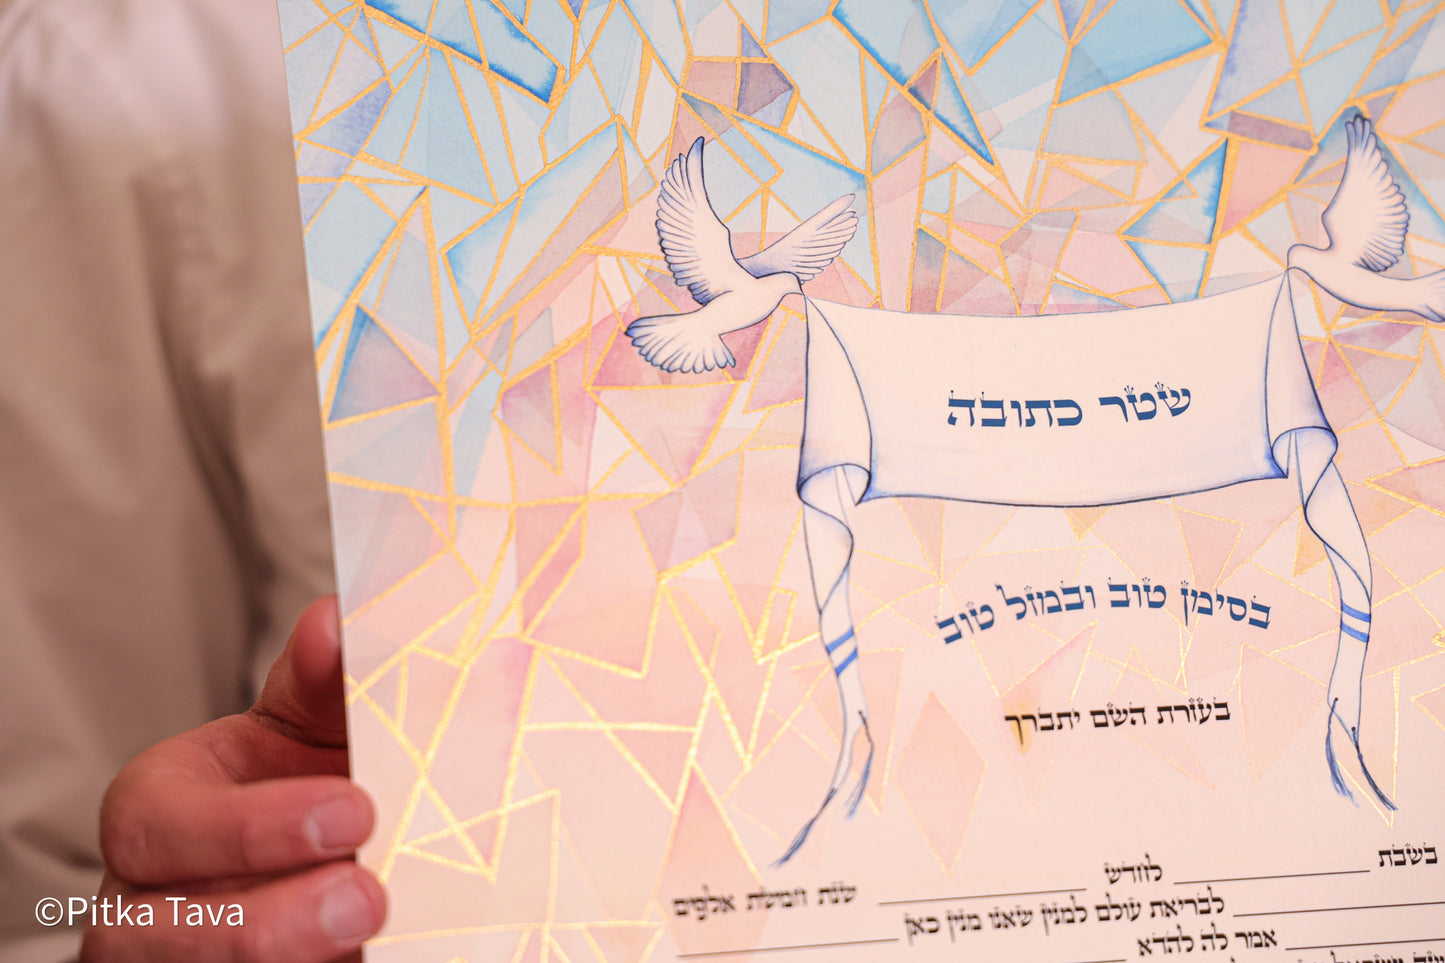 שטר כתובה
בסימן טוב ובמזל טוב
בעזרת השם יתברך
בשבת לחדש שנת חמשת אלפים
לבריאת עולם למנין שאנו מנין כאן
אמר לה להדא
©Pitka Tava